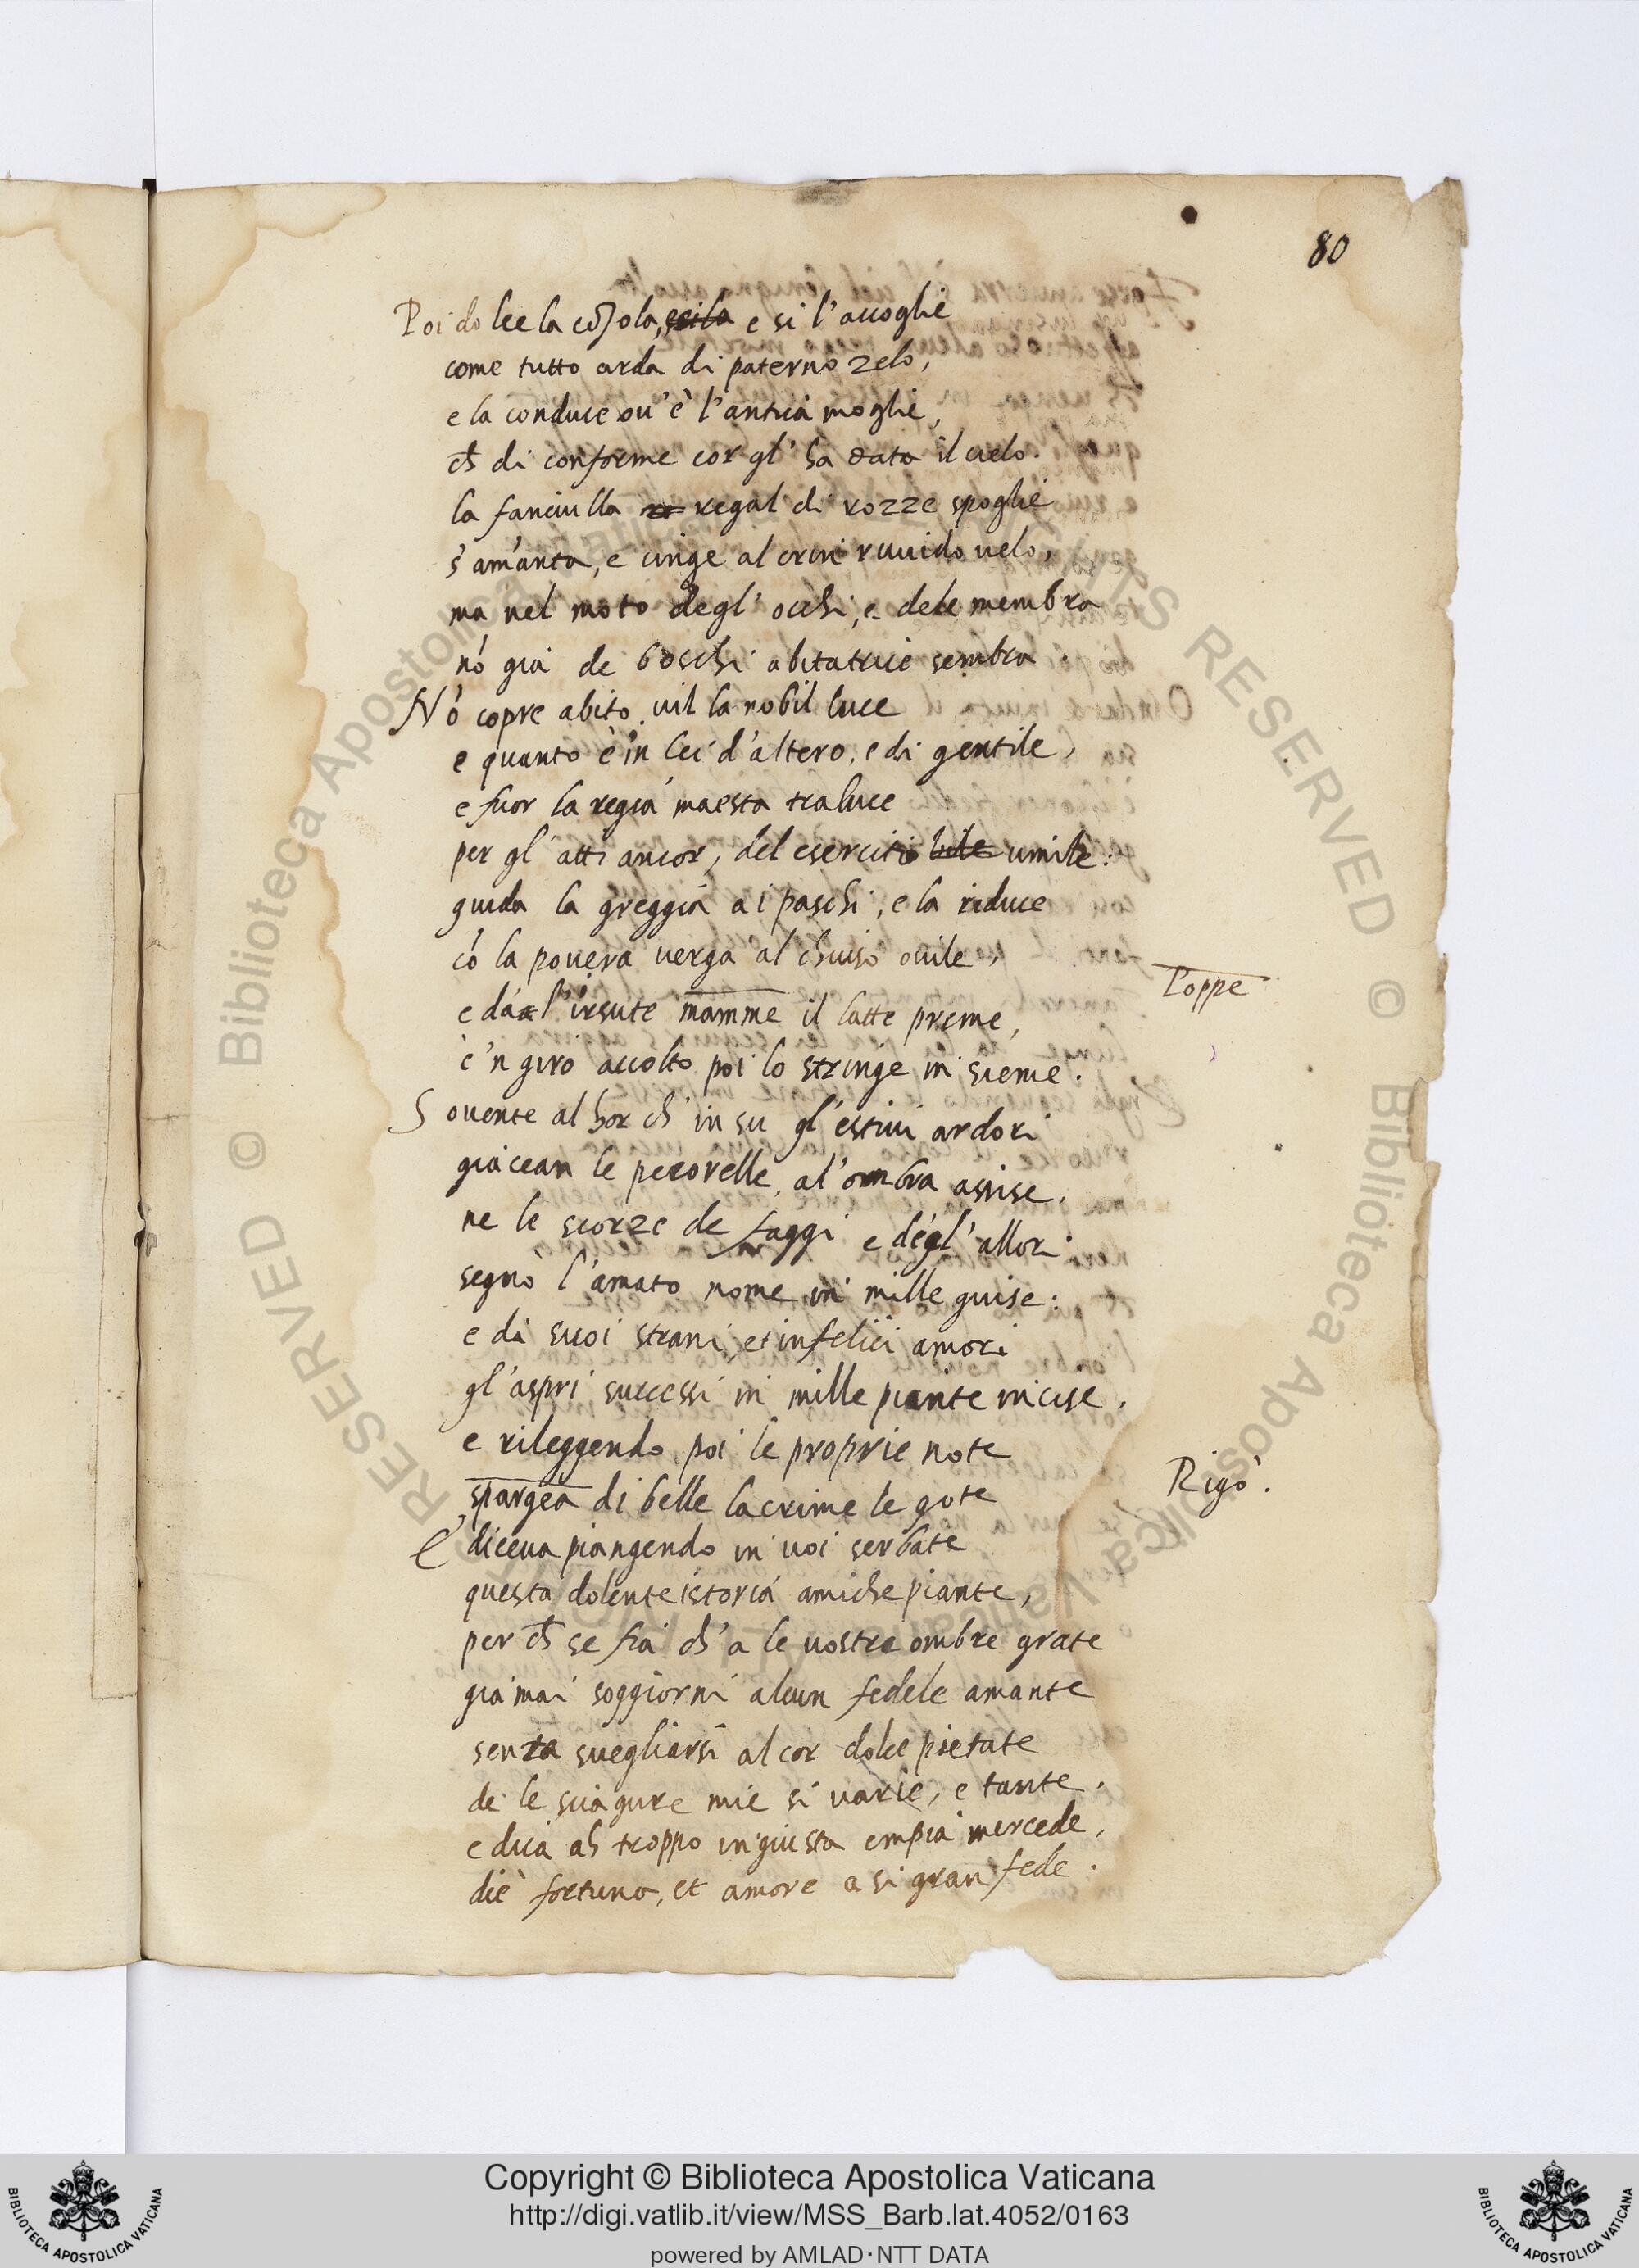 80
Poi dolce la cōsola, e si l'accoglie
come tutto arda di paterno zelo,
e la conduce ou'è l'antica moglie,
ch̄ di conforme cor gl' ha dato il cielo.
la fanciulla regal di rozze spoglie
s'am̄anta, e cinge al crin ruuido uelo,
ma nel moto degl' occhi, e dele membra
nō già de boschi abitatrice sembra.
Nō copre abito uil la nobil luce
e quanto è in lei d'altero, e di gentile,
e fuor la regia maesta traluce
per gl' atti ancor, del esercitio umile:
guida la greggia a i paschi, e la riduce
cō la pouera uerga al chiuso ouile,
Poppe
e da l'irsute mamme il latte preme,
e 'n giro accolto poi lo stringe insieme.
Souente al hor ch' in su gl' estiui ardori
giacean le pecorelle al'ombra assise,
ne le scorze de faggi e degl' allori
segnò l'amato nome in mille guise:
e di suoi strani, et infelici amori
gl'aspri successi in mille piante incise,
e rileggendo poi le proprie note
Rigò.
spargea di belle lacrime le gote
E diceua piangendo in uoi serbate
questa dolente istoria amiche piante,
per ch̄ se fia ch' a le uostre ombre grate
gia mai soggiorni alcun fedele amante
senza suegliarsi al cor dolce pietate
de le sciagure mie si uarie, e tante.
e dica ah troppo ingiusta empia mercede,
diè fortuna, et amore a si gran fede.
© Biblioteca Apostolica Vaticana
RIGHTS RESERVED
Copyright © Biblioteca Apostolica Vaticana
http://digi.vatlib.it/view/MSS_Barb.lat.4052/0163
powered by AMLAD·NTT DATA
BIBLIOTECA APOSTOLICA VATICANA
BIBLIOTECA APOSTOLICA VATICANA